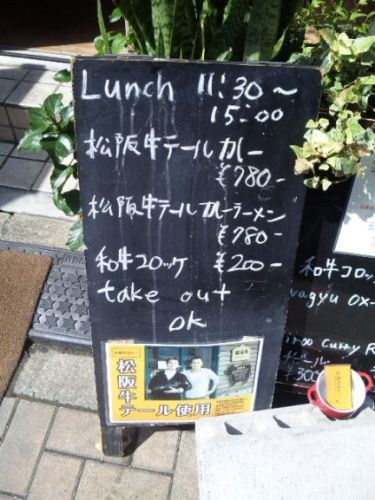 Lunch 11:30~
15:00
松阪牛テールカレー
¥780-
松阪牛テールカレーラーメン
¥780-
和牛コロッケ ¥200-
take out
OK
松阪牛
テール使用
和牛コロッ
wagyu ox-
curry R
¥300